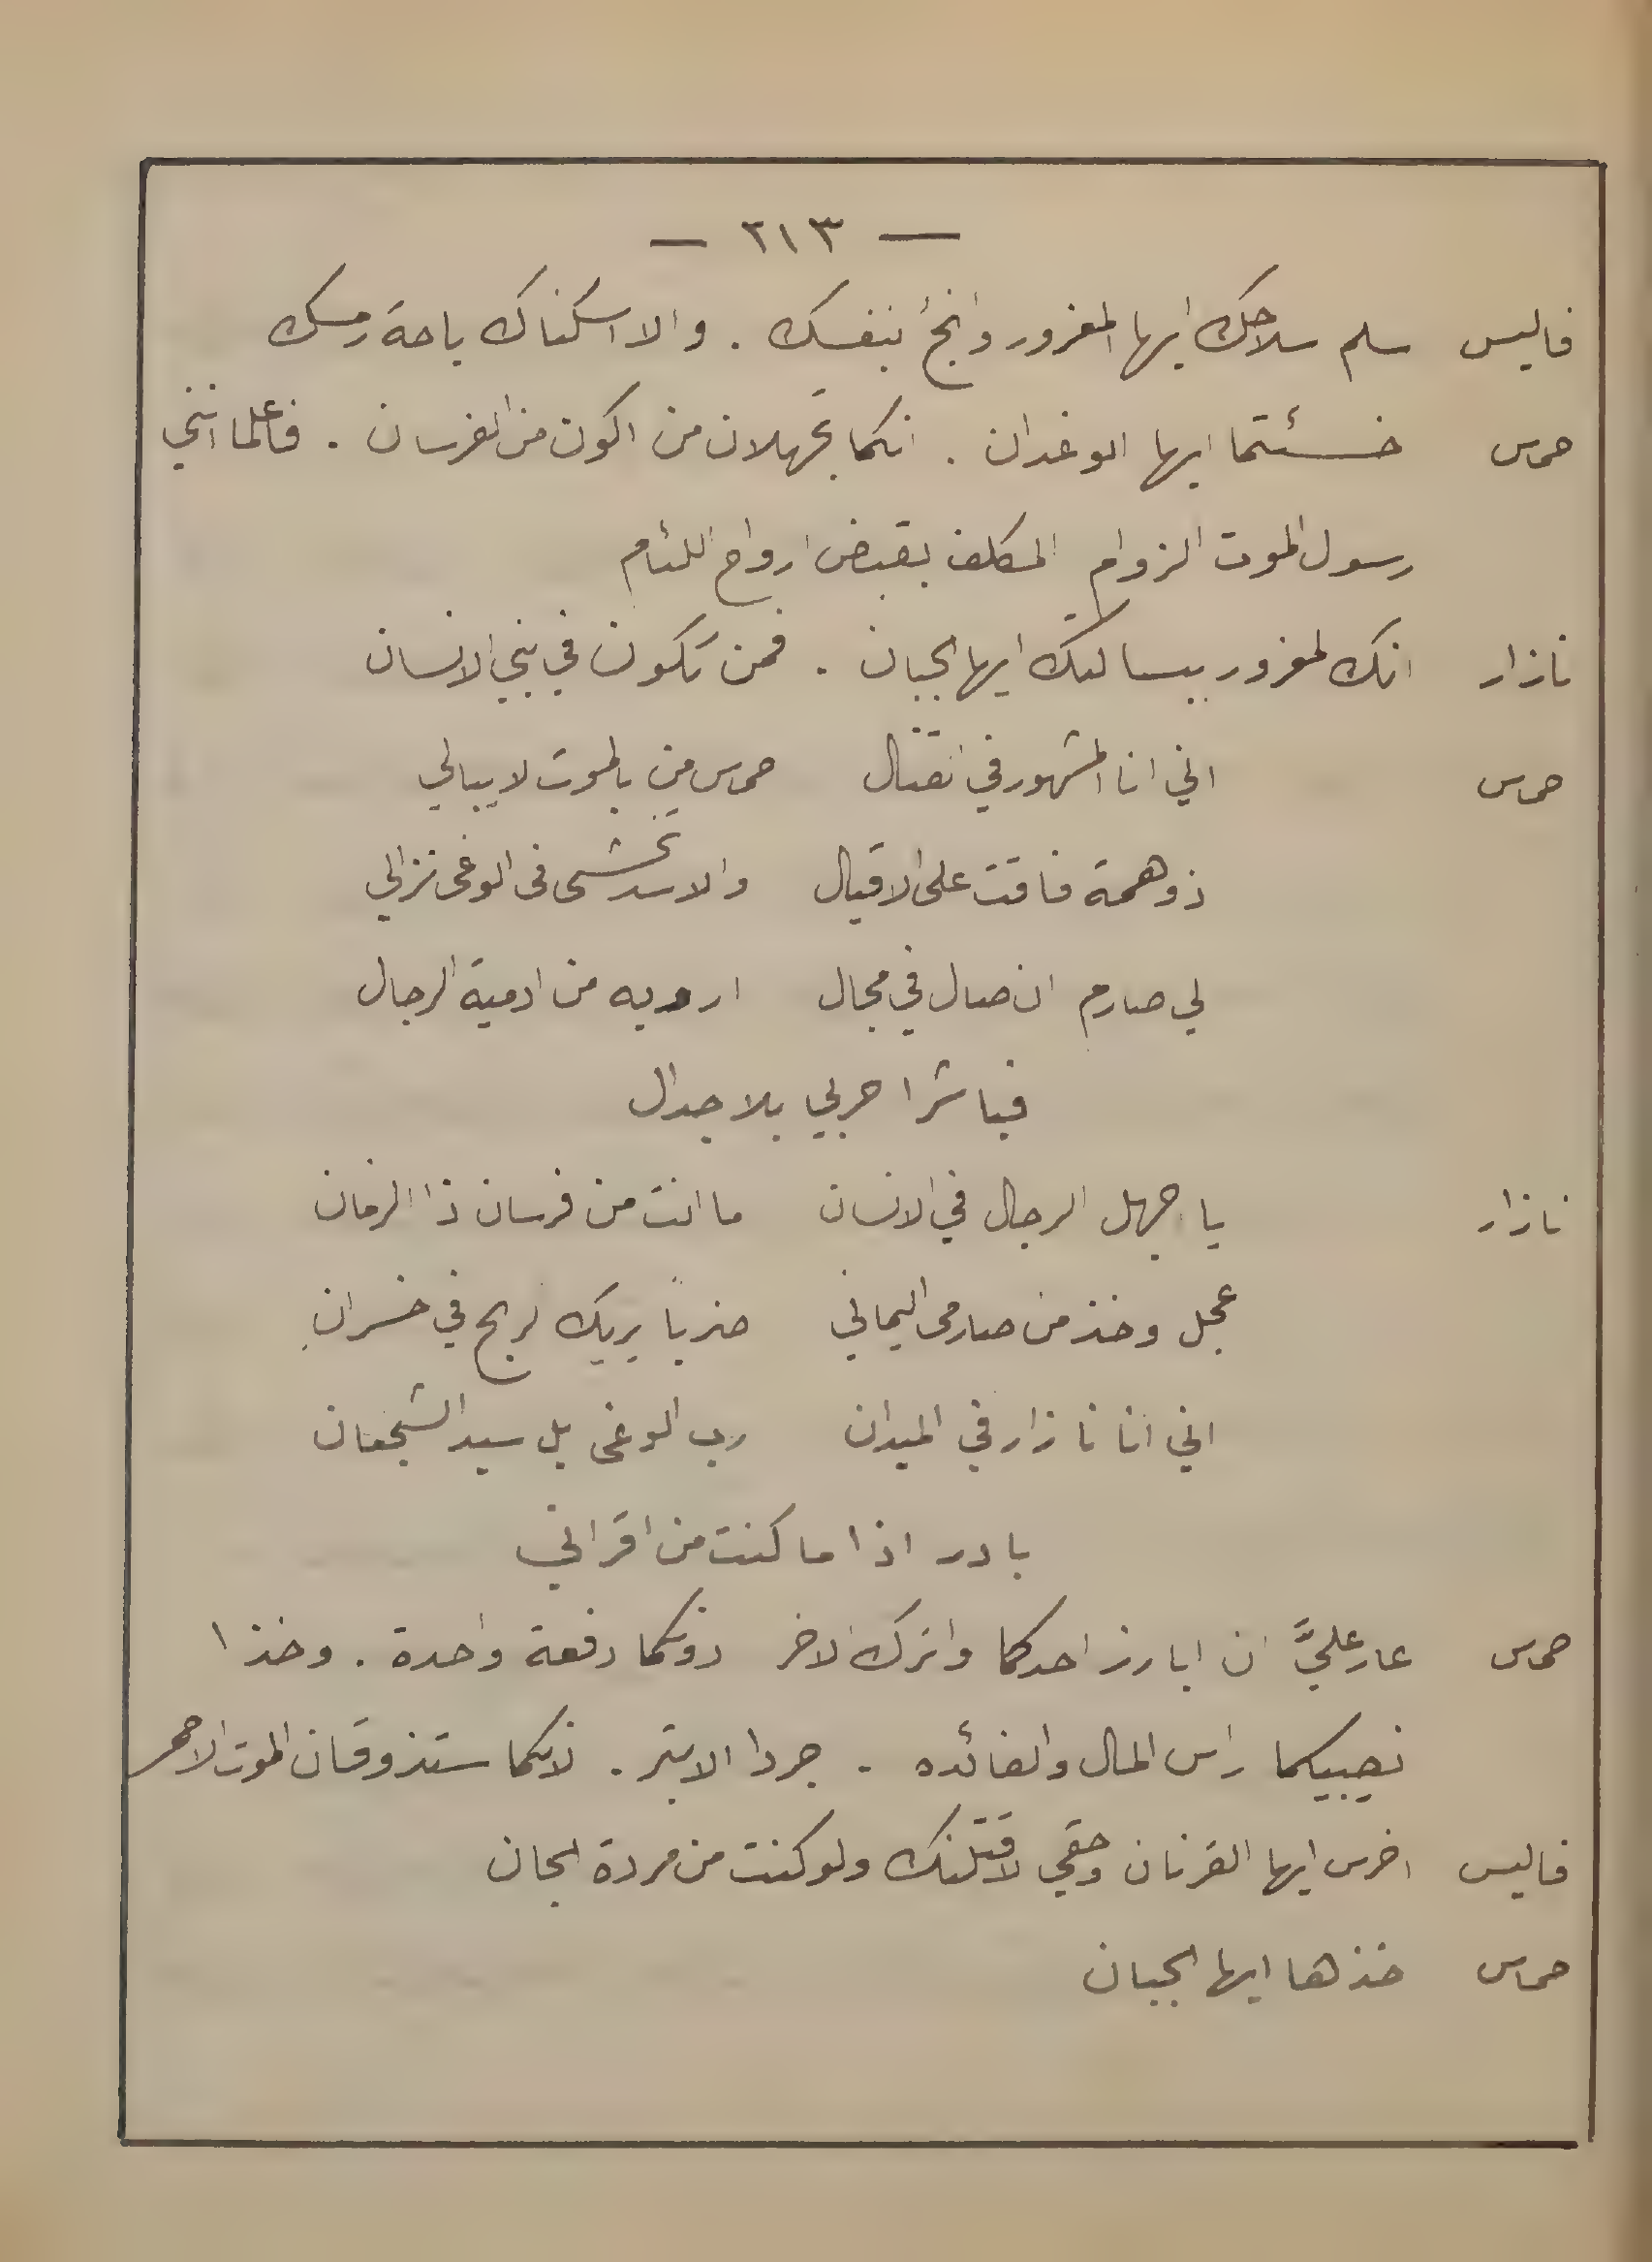 — ٢١٣ —
فاليس سلم سلاحك ايها المغرور وانجُ بنفسك . والا اسكناك باحة رمسك
حمرس خسئتما ايها الوغدان . انكما تجهلان من اكون من الفرسان . فاعلما انني
رسول الموت الزوام المكلف بقبض ارواح اللئام
نازار انك لمغرور ببسالتك ايها الجبان . فمن تكون في بني الانسان
حمرس اني انا المشهور في القتال حمرس من بالموت لا يبالي
ذو همة فاقت على الاقيال والاسد تخشى في الوغى نزالي
لي صارم ان صال في مجال ارويه من ادمية الرجال
فباشرا حربي بلا جدال
نازار يا اجهل الرجال في الانسان ما انت من فرسان ذا الزمان
عجل وخذ من صارمي اليماني ضرباً يريك الربح في خسران
اني انا نازار في الميدان رب الوغى بل سيد الشجعان
بادر اذا ما كنت من اقراني
حمرس عار عليَّ ان ابارز احدكما واترك الاخر دونكما دفعة واحدة . وخذا
نصيبيكما راس المال والفائده . جردا الابتر . لانكما ستذوقان الموت الاحمر
فاليس اخرس ايها القرنان وحقي لاقتلنك ولو كنت من مردة الجان
حماس خذها ايها الجبان